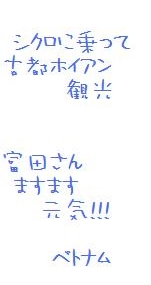 シクロに乗って
古都ホイアン
観光
富田さん
ますます
元気!!!
ベトナム